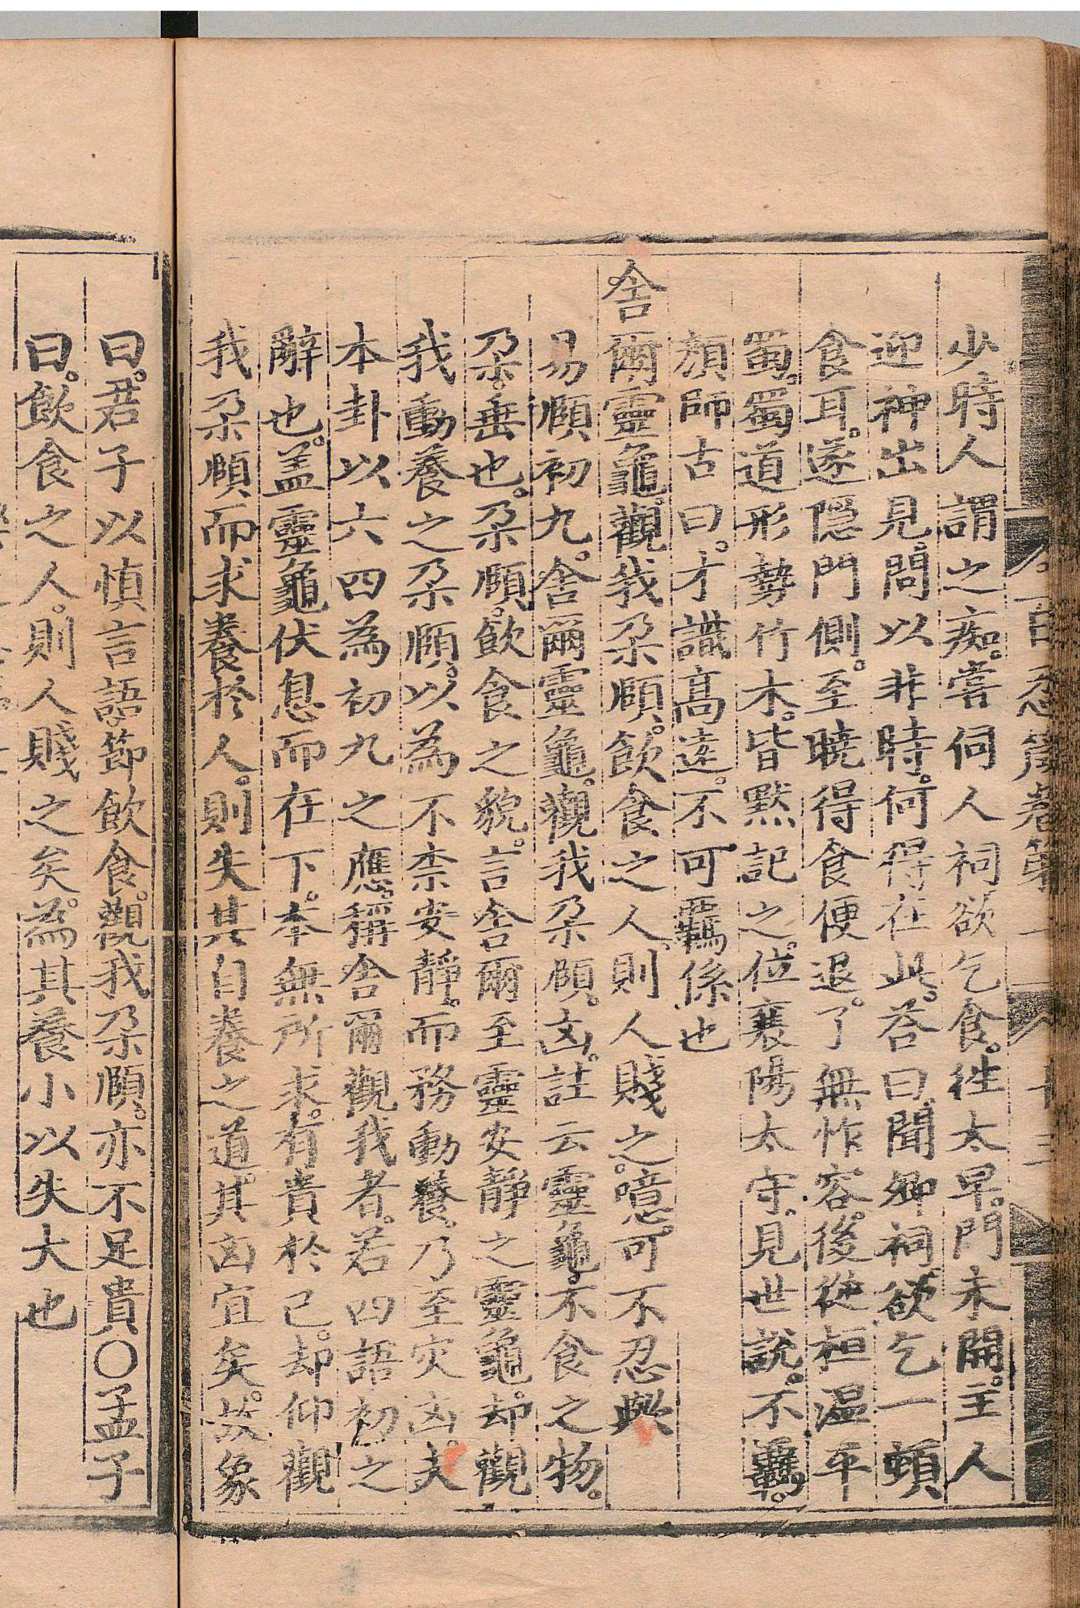 少時人謂之痴。嘗伺人祠欲乞食。徃太早。門未開。主人
迎神出見。問以非時。何得在此。荅曰。聞卿祠。欲乞一頓
食耳。遂隠門側。至曉得食便退。了無怍容。後從桓温平
蜀。蜀道形勢竹木。皆黙記之。位襄陽太守。見世說。不羈。
顔師古曰。才識髙遠。不可羈係也
舍爾靈龜。觀我朶頤。飲食之人。則人賤之。噫。可不忍歟
易頤初九。舍爾靈龜。觀我朶頤。凶。註云靈龜。不食之物。
朶。垂也。朶頤。飲食之貌。言舍爾至靈安靜之靈龜。却觀
我動養之朶頤。以為不柰安靜。而務動養。乃至灾凶。夫
本卦以六四為初九之應。稱舍爾觀我者。若四語初之
辭也。盖靈龜伏息而在下。本無所求。有貴於己。却仰觀
我朶頤而求養於人。則失其自養之道。其凶宜矣。故象
曰。君子以慎言語。節飲食。觀我朶頤。亦不足貴○孟子
曰。飲食之人。則人賤之矣。為其養小以失大也